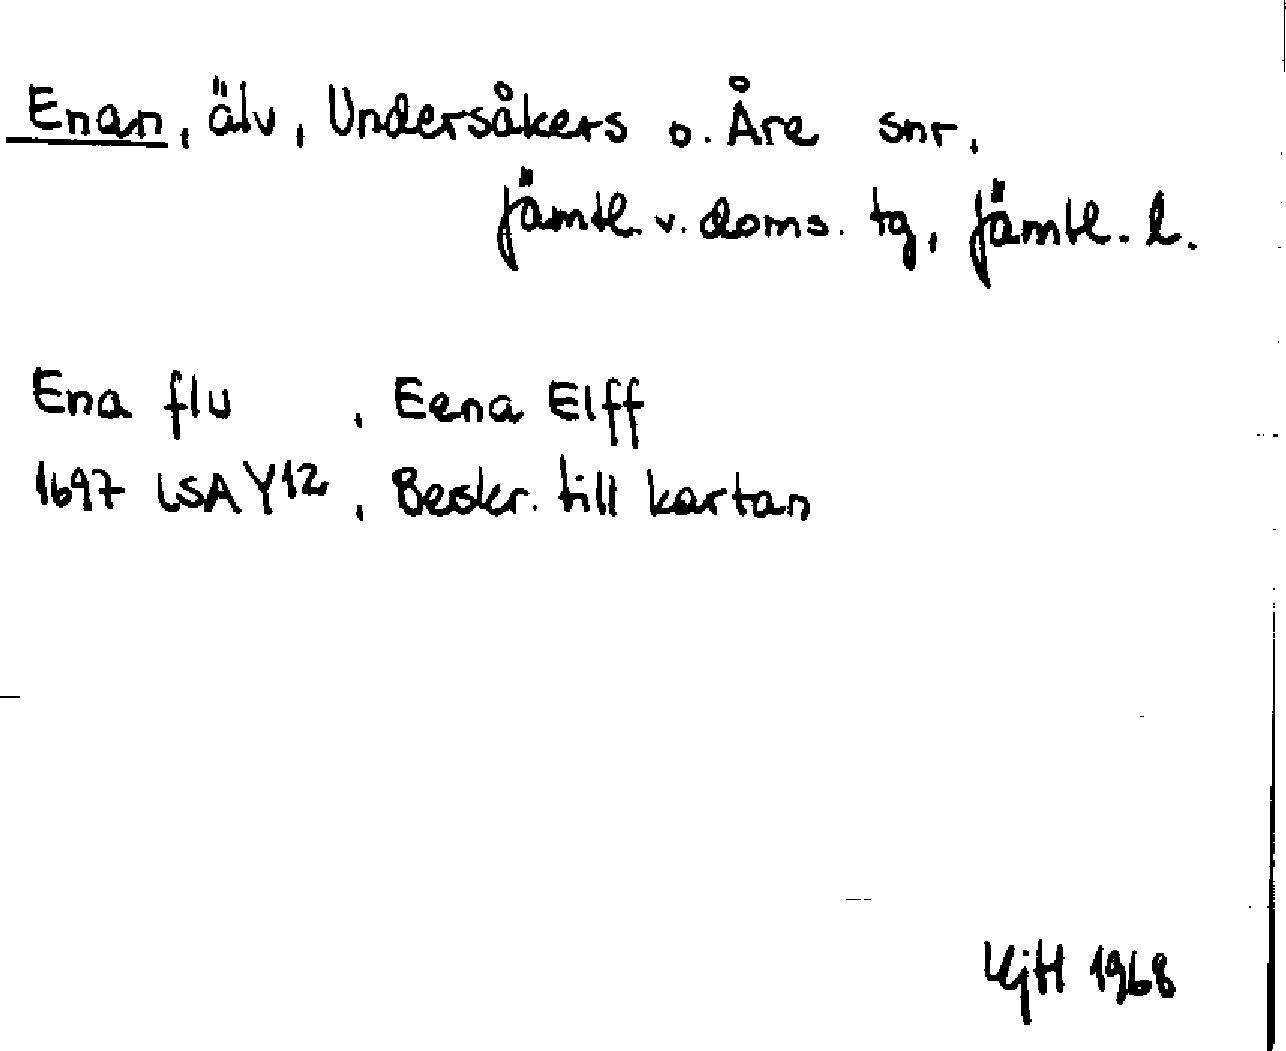 Enan, älv, Undersåkers o. Åre snr,
Jämtl. v. doms. tg, Jämtl. l.
Ena flu , Eena Elff
1697 LSA Y12, Beskr. till kartan
1968